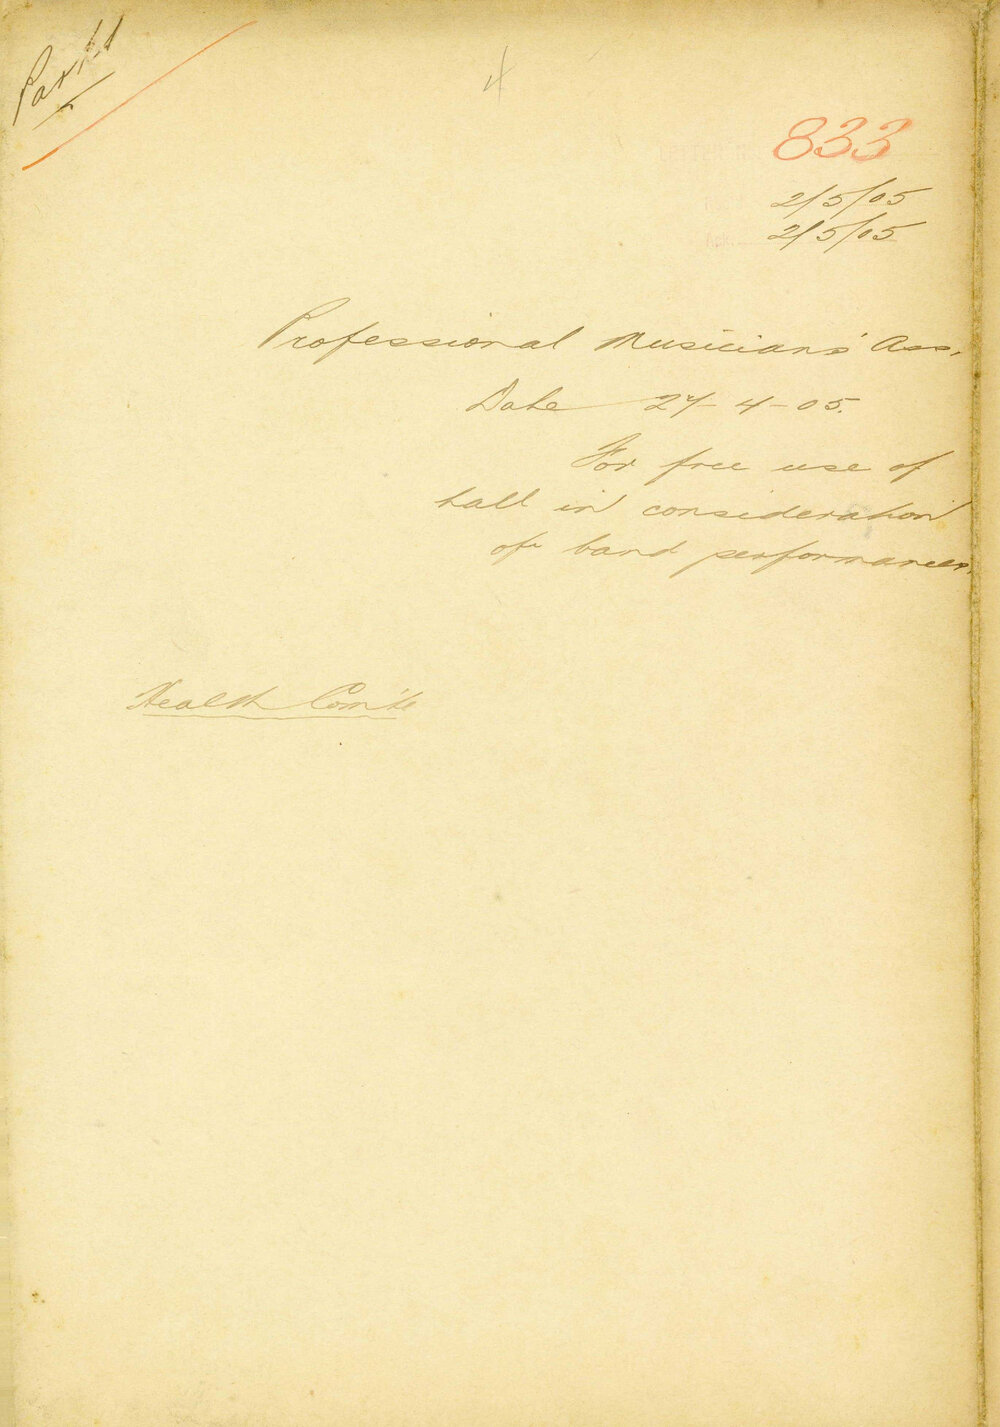 4
833
2/5/05
2/5/05
Professional Musicians' Ass.
Date 27-4-05.
For free use of
hall in consideration
of band performances.
Health Com'te